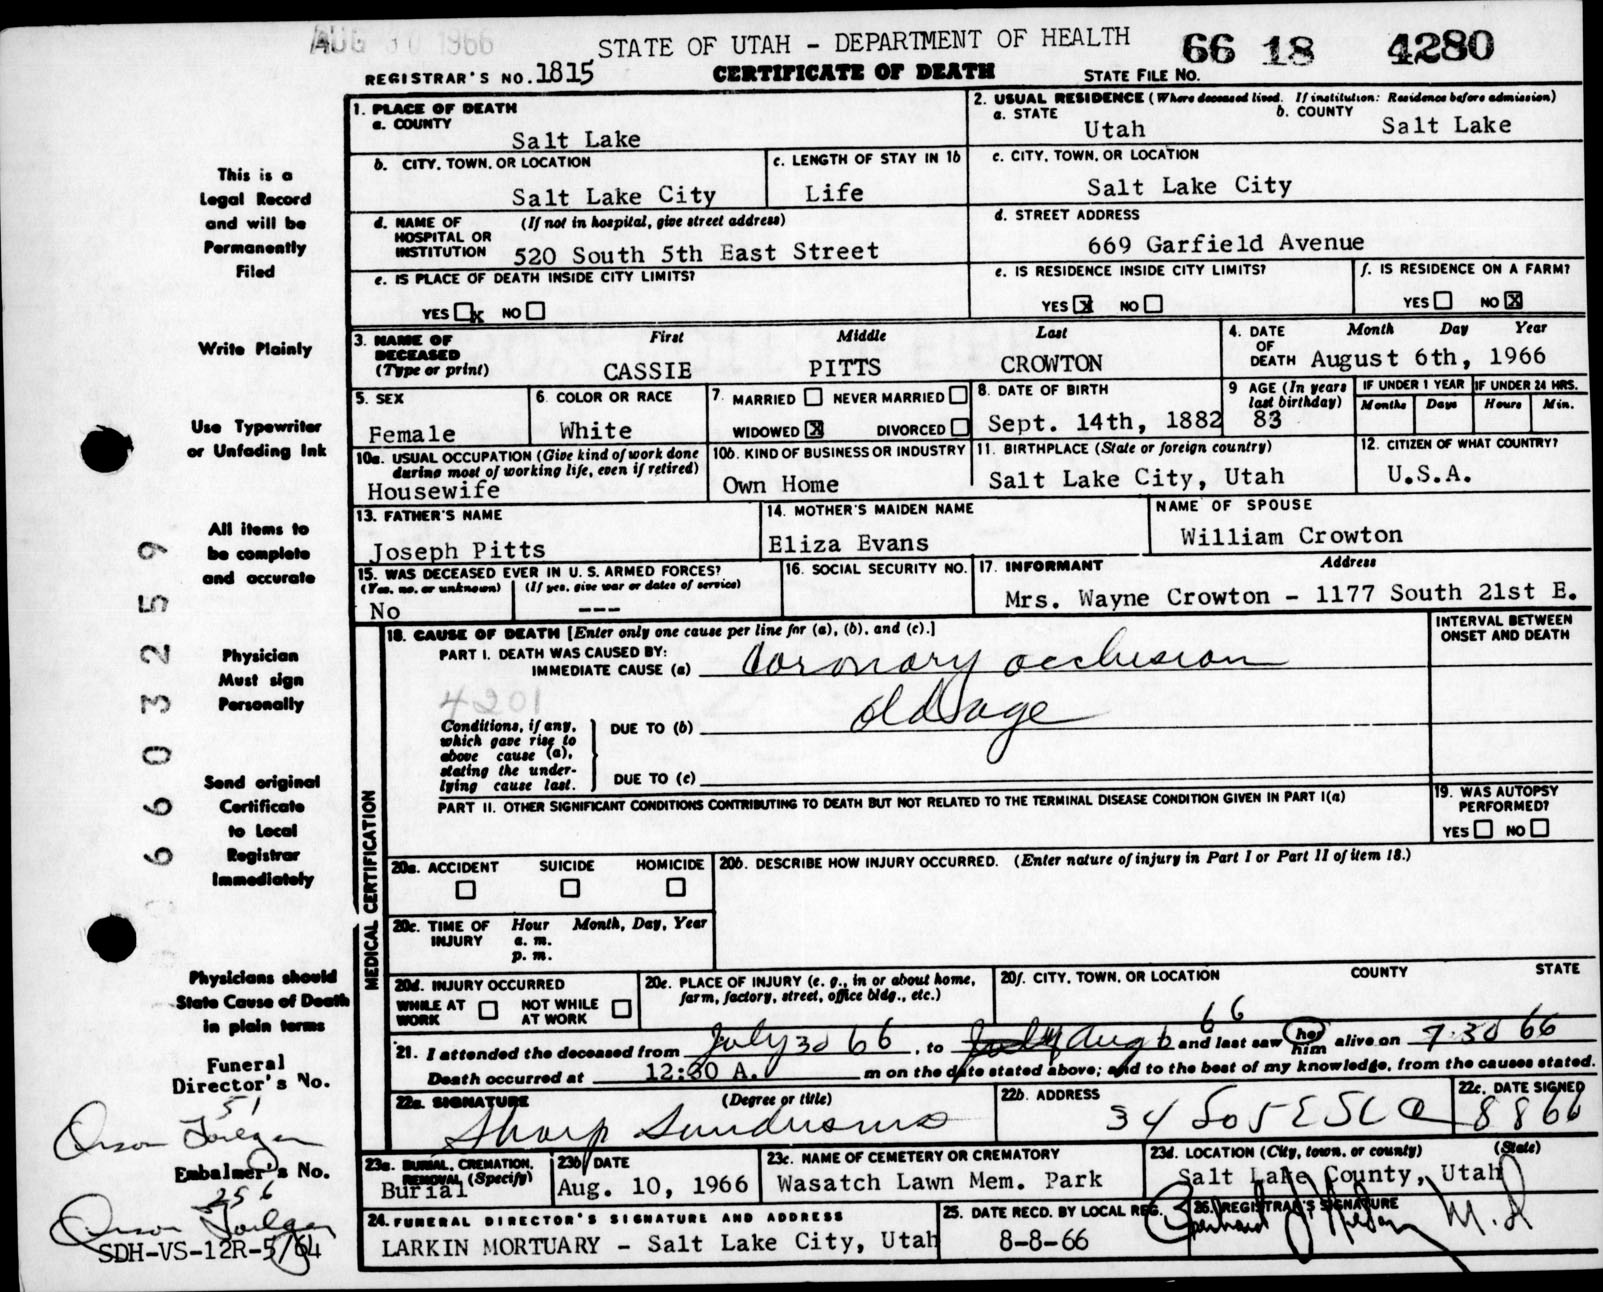 AUG 30 1966
STATE OF UTAH - DEPARTMENT OF HEALTH
66 18 4280
REGISTRAR'S NO. 1815
CERTIFICATE OF DEATH
STATE FILE NO.
This is a
Legal Record
and will be
Permanently
Filed
Write Plainly
Use Typewriter
or Unfading Ink
All items to
be complete
and accurate
Physician
Must sign
Personally
Send original
Certificate
to Local
Registrar
Immediately
Physicians should
State Cause of Death
in plain terms
Funeral
Director's No.
51
Orson
Embalmer's No.
256
Orson
SDH-VS-12R-5/64
6 6 0 3 2 5 9
1. PLACE OF DEATH
a. COUNTY
Salt Lake
2. USUAL RESIDENCE (Where deceased lived. If institution: Residence before admission)
a. STATE
Utah
b. COUNTY
Salt Lake
b. CITY, TOWN, OR LOCATION
Salt Lake City
c. LENGTH OF STAY IN 1b
Life
c. CITY, TOWN, OR LOCATION
Salt Lake City
d. NAME OF HOSPITAL OR INSTITUTION (If not in hospital, give street address)
520 South 5th East Street
d. STREET ADDRESS
669 Garfield Avenue
e. IS PLACE OF DEATH INSIDE CITY LIMITS?
YES x NO
e. IS RESIDENCE INSIDE CITY LIMITS?
YES X NO
f. IS RESIDENCE ON A FARM?
YES NO X
3. NAME OF DECEASED (Type or print)
First Middle Last
CASSIE PITTS CROWTON
4. DATE OF DEATH
Month Day Year
August 6th, 1966
5. SEX
Female
6. COLOR OR RACE
White
7. MARRIED NEVER MARRIED
WIDOWED X DIVORCED
8. DATE OF BIRTH
Sept. 14th, 1882
9 AGE (In years last birthday)
83
IF UNDER 1 YEAR
Months Days
IF UNDER 24 HRS.
Hours Min.
10a. USUAL OCCUPATION (Give kind of work done during most of working life, even if retired)
Housewife
10b. KIND OF BUSINESS OR INDUSTRY
Own Home
11. BIRTHPLACE (State or foreign country)
Salt Lake City, Utah
12. CITIZEN OF WHAT COUNTRY?
U.S.A.
13. FATHER'S NAME
Joseph Pitts
14. MOTHER'S MAIDEN NAME
Eliza Evans
NAME OF SPOUSE
William Crowton
15. WAS DECEASED EVER IN U. S. ARMED FORCES?
(Yes, no, or unknown) (If yes, give war or dates of service)
No ---
16. SOCIAL SECURITY NO.
17. INFORMANT Address
Mrs. Wayne Crowton - 1177 South 21st E.
MEDICAL CERTIFICATION
18. CAUSE OF DEATH [Enter only one cause per line for (a), (b), and (c).]
INTERVAL BETWEEN ONSET AND DEATH
PART I. DEATH WAS CAUSED BY:
IMMEDIATE CAUSE (a) Coronary occlusion
4201
Conditions, if any, which gave rise to above cause (a), stating the underlying cause last.
DUE TO (b) old age
DUE TO (c)
PART II. OTHER SIGNIFICANT CONDITIONS CONTRIBUTING TO DEATH BUT NOT RELATED TO THE TERMINAL DISEASE CONDITION GIVEN IN PART I(a)
19. WAS AUTOPSY PERFORMED?
YES NO
20a. ACCIDENT SUICIDE HOMICIDE
20b. DESCRIBE HOW INJURY OCCURRED. (Enter nature of injury in Part I or Part II of item 18.)
20c. TIME OF INJURY
Hour Month, Day, Year
a. m.
p. m.
20d. INJURY OCCURRED
WHILE AT WORK NOT WHILE AT WORK
20e. PLACE OF INJURY (e. g., in or about home, farm, factory, street, office bldg., etc.)
20f. CITY, TOWN, OR LOCATION COUNTY STATE
21. I attended the deceased from July 30 66, to Aug 6 66 and last saw her him alive on 7 30 66
Death occurred at 12:30 A. m on the date stated above; and to the best of my knowledge, from the causes stated.
22a. SIGNATURE (Degree or title)
Sharp Sanders
22b. ADDRESS
34 So 5 E SLC
22c. DATE SIGNED
8 8 66
23a. BURIAL, CREMATION, REMOVAL (Specify)
Burial
23b DATE
Aug. 10, 1966
23c. NAME OF CEMETERY OR CREMATORY
Wasatch Lawn Mem. Park
23d. LOCATION (City, town, or county) (State)
Salt Lake County, Utah
24. FUNERAL DIRECTOR'S SIGNATURE AND ADDRESS
LARKIN MORTUARY - Salt Lake City, Utah
25. DATE RECD. BY LOCAL REG.
8-8-66
26. REGISTRAR'S SIGNATURE
M.D